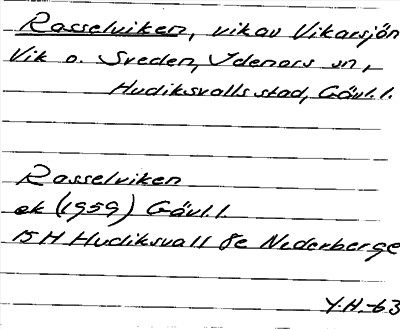 Rasselviken, vik av Vikarsjön
Vik o. Sveden, Idenors sn,
Hudiksvalls stad, Gävl.l.
Rasselviken
ek (1959) Gävl.l.
15H Hudiksvall 8e Nederberge
Y.H.-63